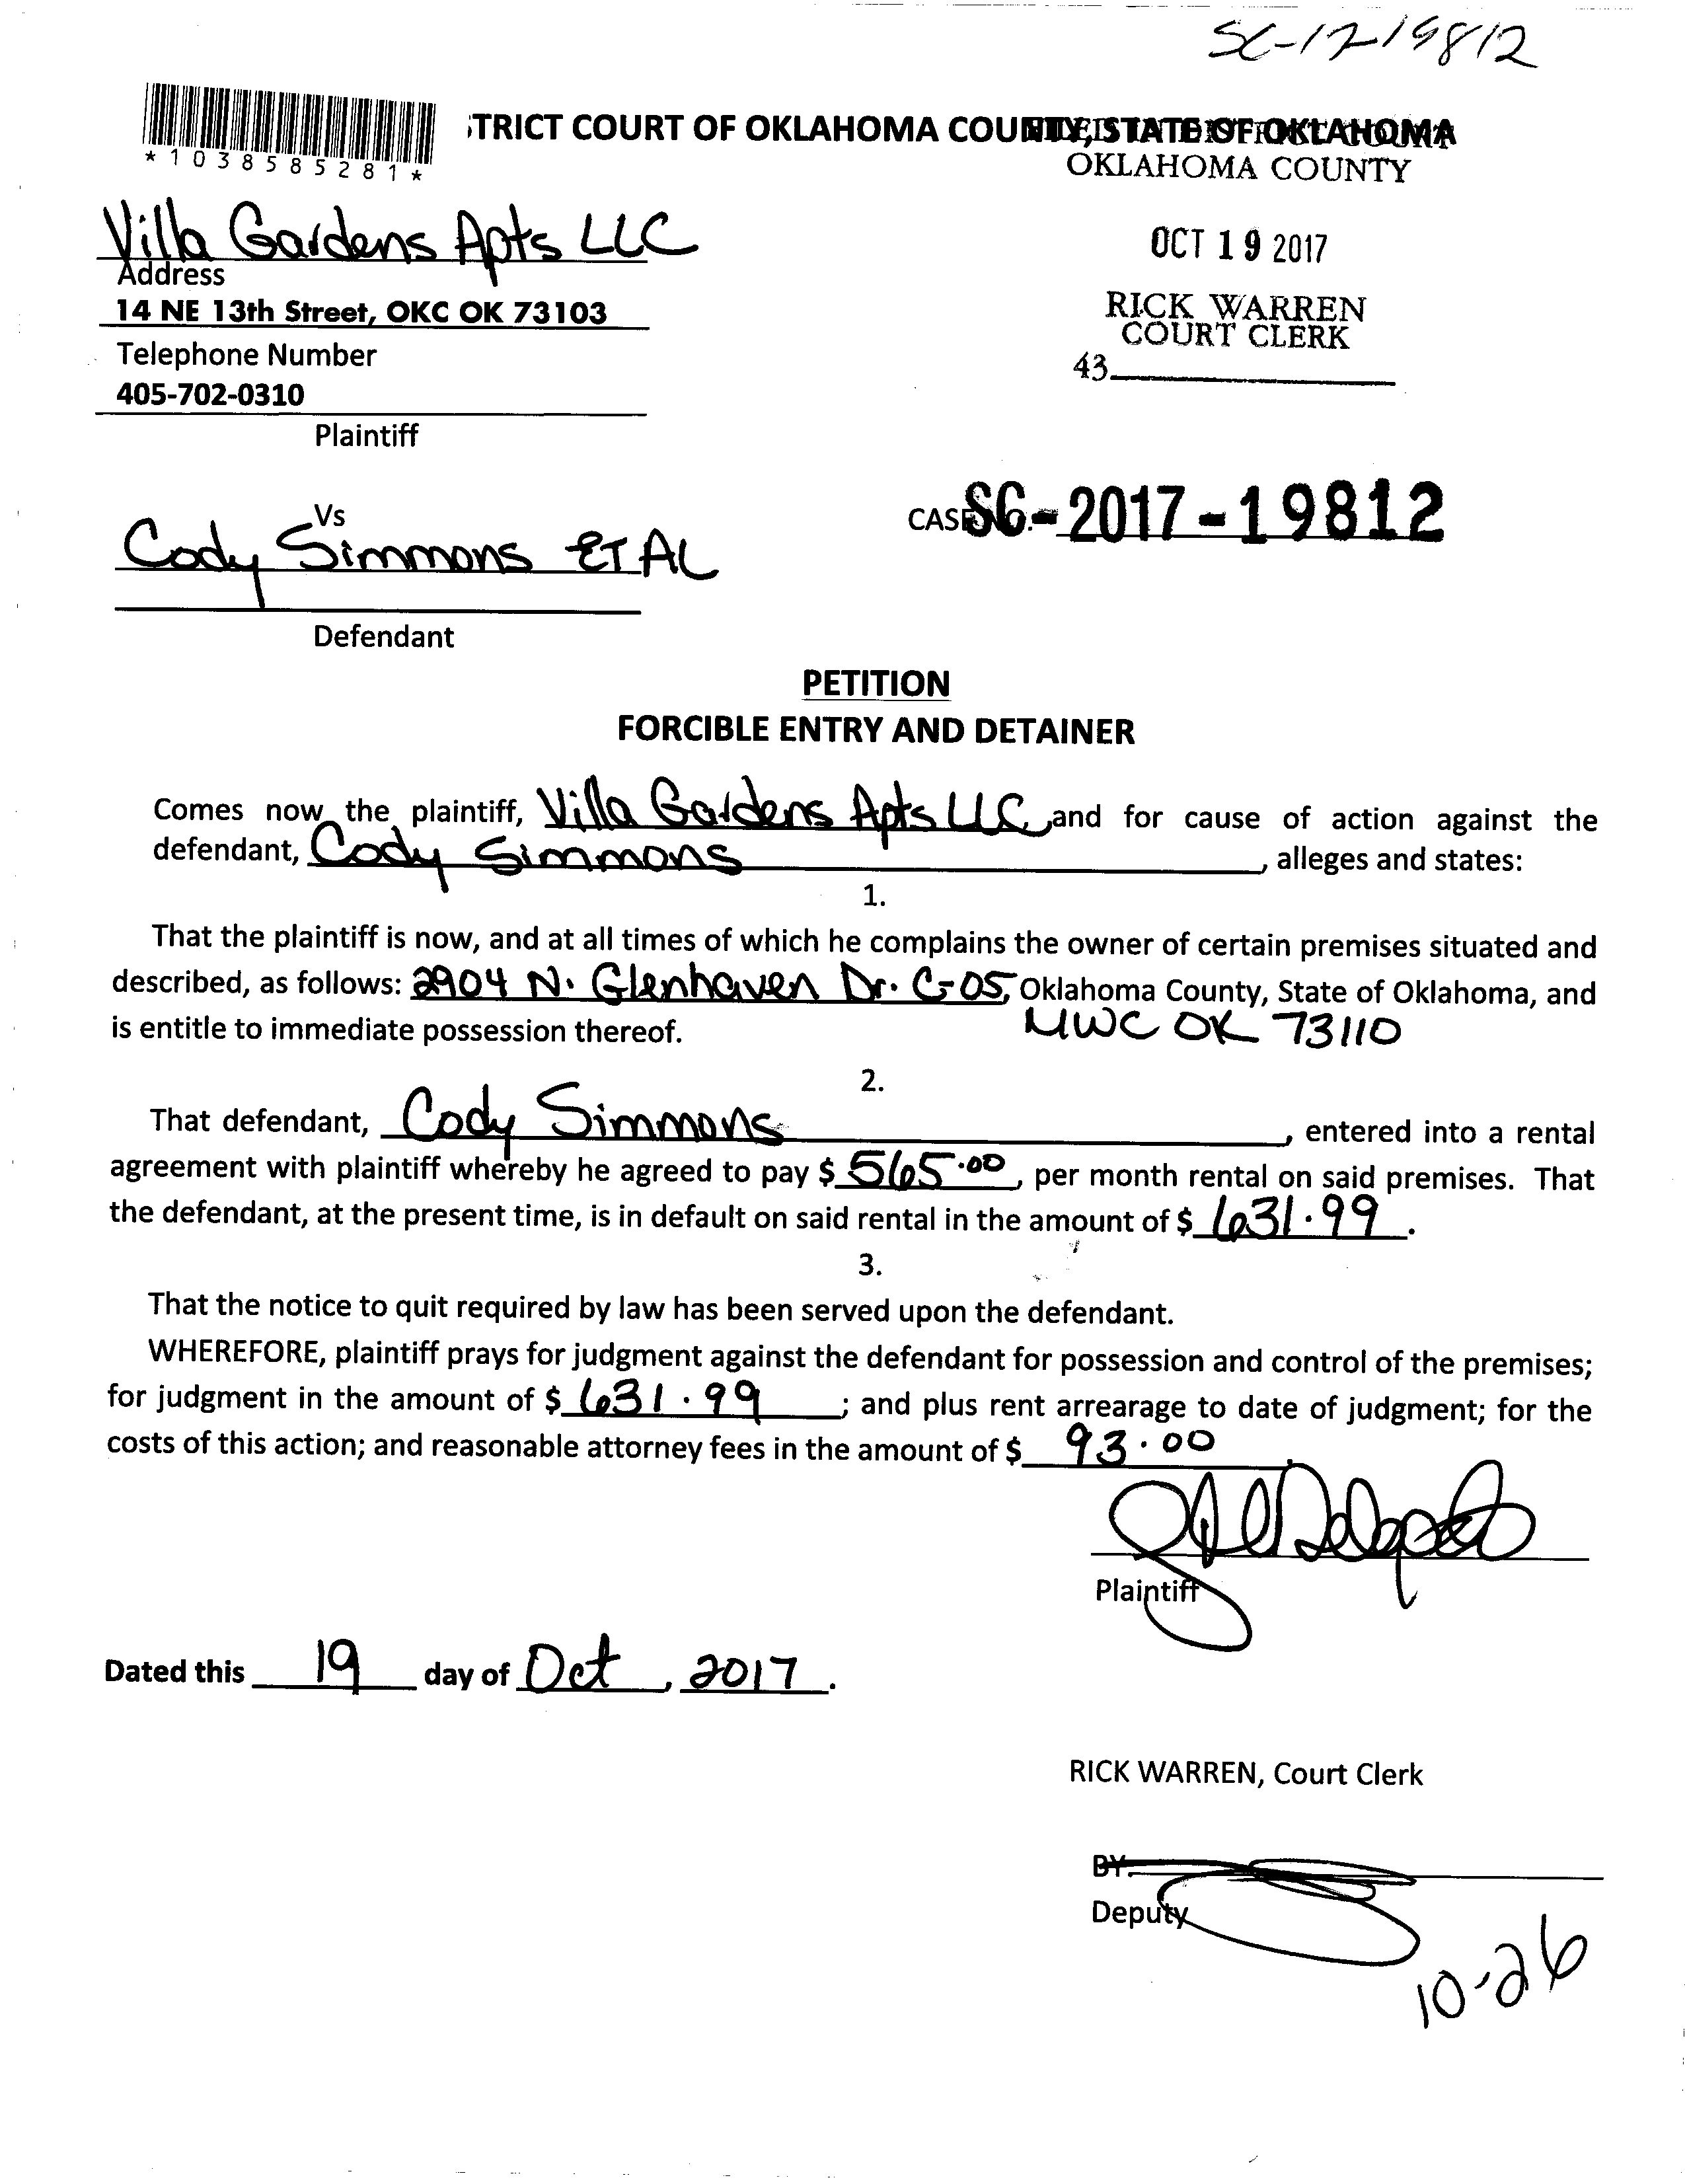 SC-17-19812
*1038585281*
TRICT COURT OF OKLAHOMA COUNTY, STATE OF OKLAHOMA
OKLAHOMA COUNTY
Villa Gardens Apts LLC
Address
14 NE 13th Street, OKC OK 73103
Telephone Number
405-702-0310
Plaintiff
OCT 19 2017
RICK WARREN
COURT CLERK
43
Vs
Cody Simmons ET AL
Defendant
CASE NO. SC-2017-19812
PETITION
FORCIBLE ENTRY AND DETAINER
Comes now the plaintiff, Villa Gardens Apts LLC and for cause of action against the
defendant, Cody Simmons, alleges and states:
1.
That the plaintiff is now, and at all times of which he complains the owner of certain premises situated and
described, as follows: 2904 N. Glenhaven Dr. C-05, Oklahoma County, State of Oklahoma, and
is entitle to immediate possession thereof. MWC OK 73110
2.
That defendant, Cody Simmons, entered into a rental
agreement with plaintiff whereby he agreed to pay $ 565.00, per month rental on said premises. That
the defendant, at the present time, is in default on said rental in the amount of $ 631.99.
3.
That the notice to quit required by law has been served upon the defendant.
WHEREFORE, plaintiff prays for judgment against the defendant for possession and control of the premises;
for judgment in the amount of $ 631.99; and plus rent arrearage to date of judgment; for the
costs of this action; and reasonable attorney fees in the amount of $ 93.00.
Plaintiff
Dated this 19 day of Oct, 2017.
RICK WARREN, Court Clerk
BY
Deputy
10-26